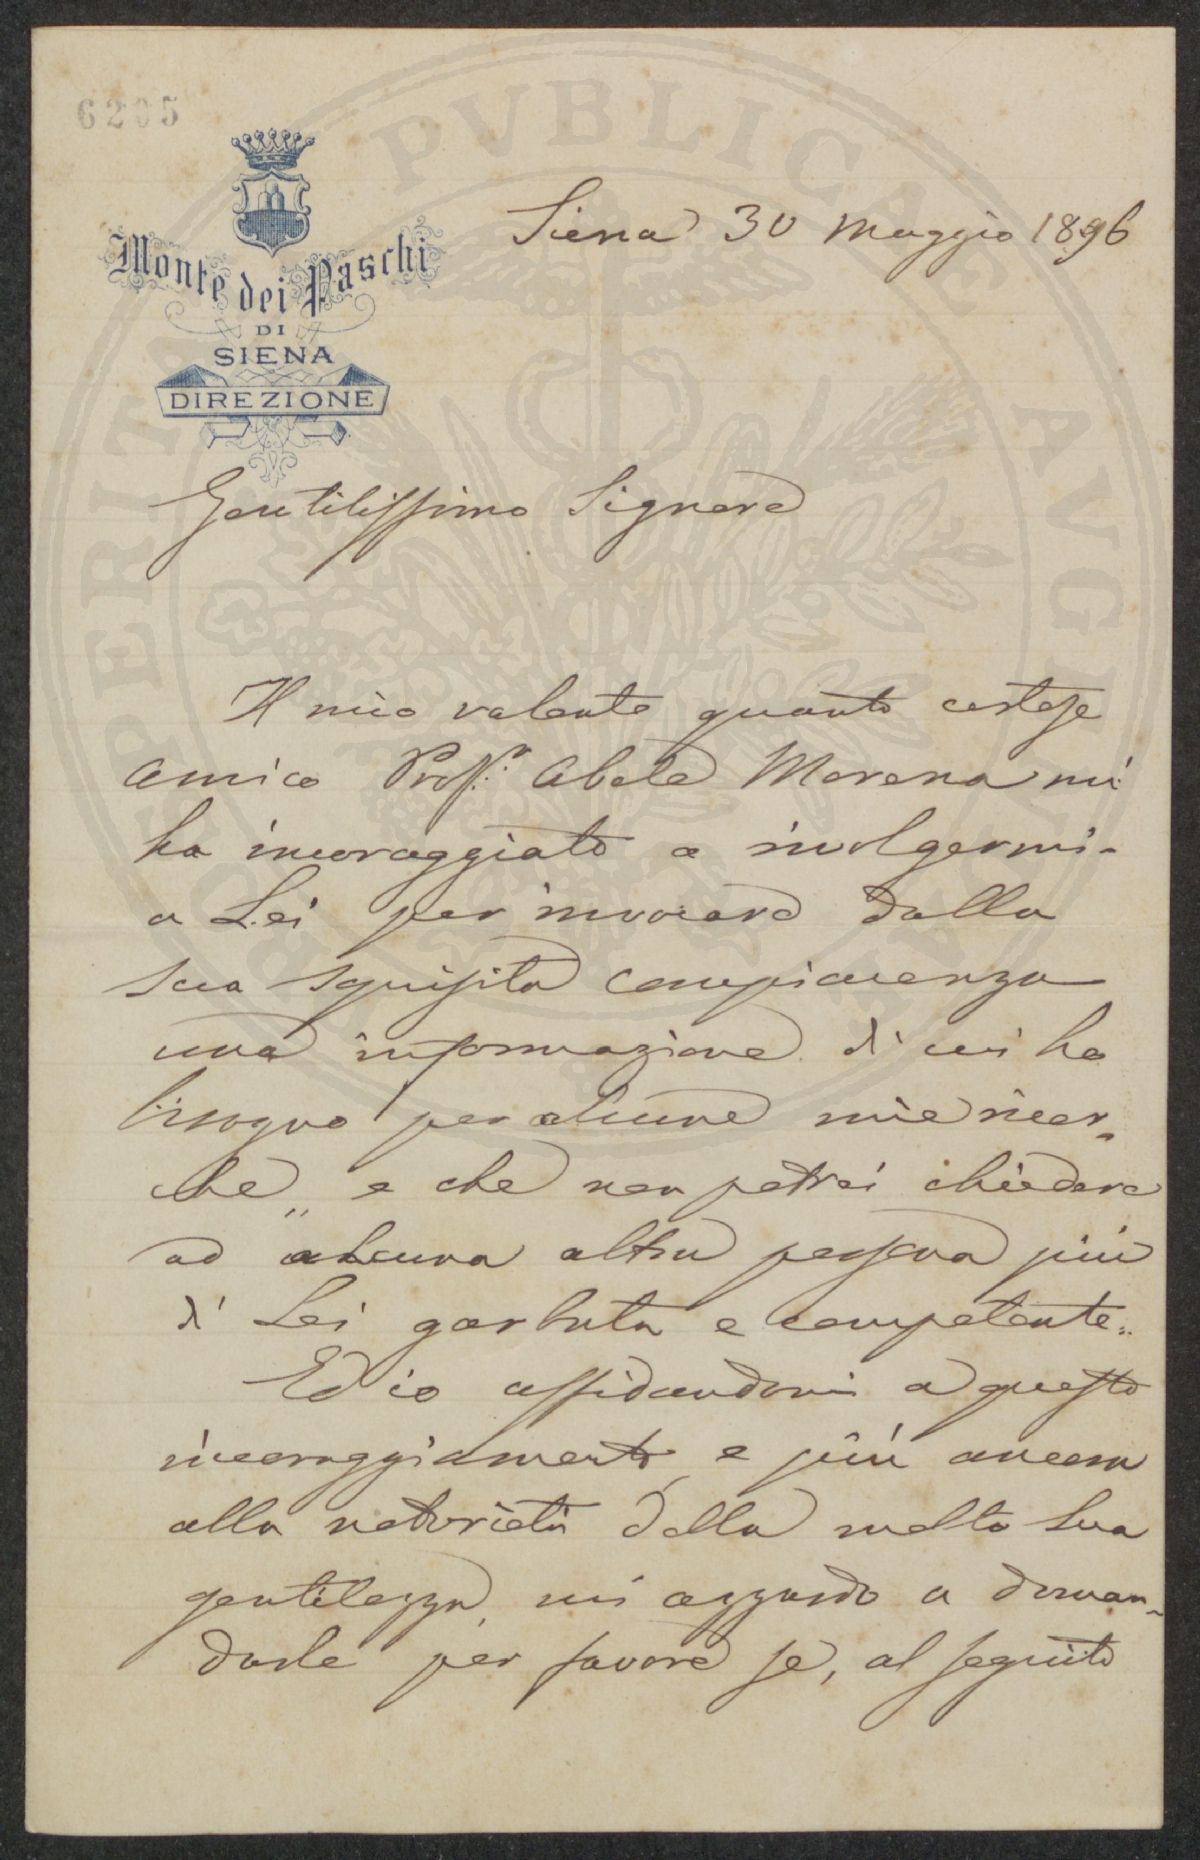 6205
Monte dei Paschi
DI
SIENA
DIREZIONE
Siena 30 Maggio 1896
Gentilissimo Signore
Il mio valente quanto cortese
amico Prof.r Abele Morena mi
ha incoraggiato a rivolgermi
a Lei per invocare dalla
sua squisita compiacenza
una informazione di cui ho
bisogno per alcune mie ricer-
che, e che non potrei chiedere
ad alcuna altra persona più
di Lei garbata e competente.
Ed io affidandomi a questo
incoraggiamento, e più ancora
alla notorietà della molta Sua
gentilezza, mi azzardo a doman-
darle per favore se, al seguito
PROSPERITATI PVBLICAE AVGENDAE